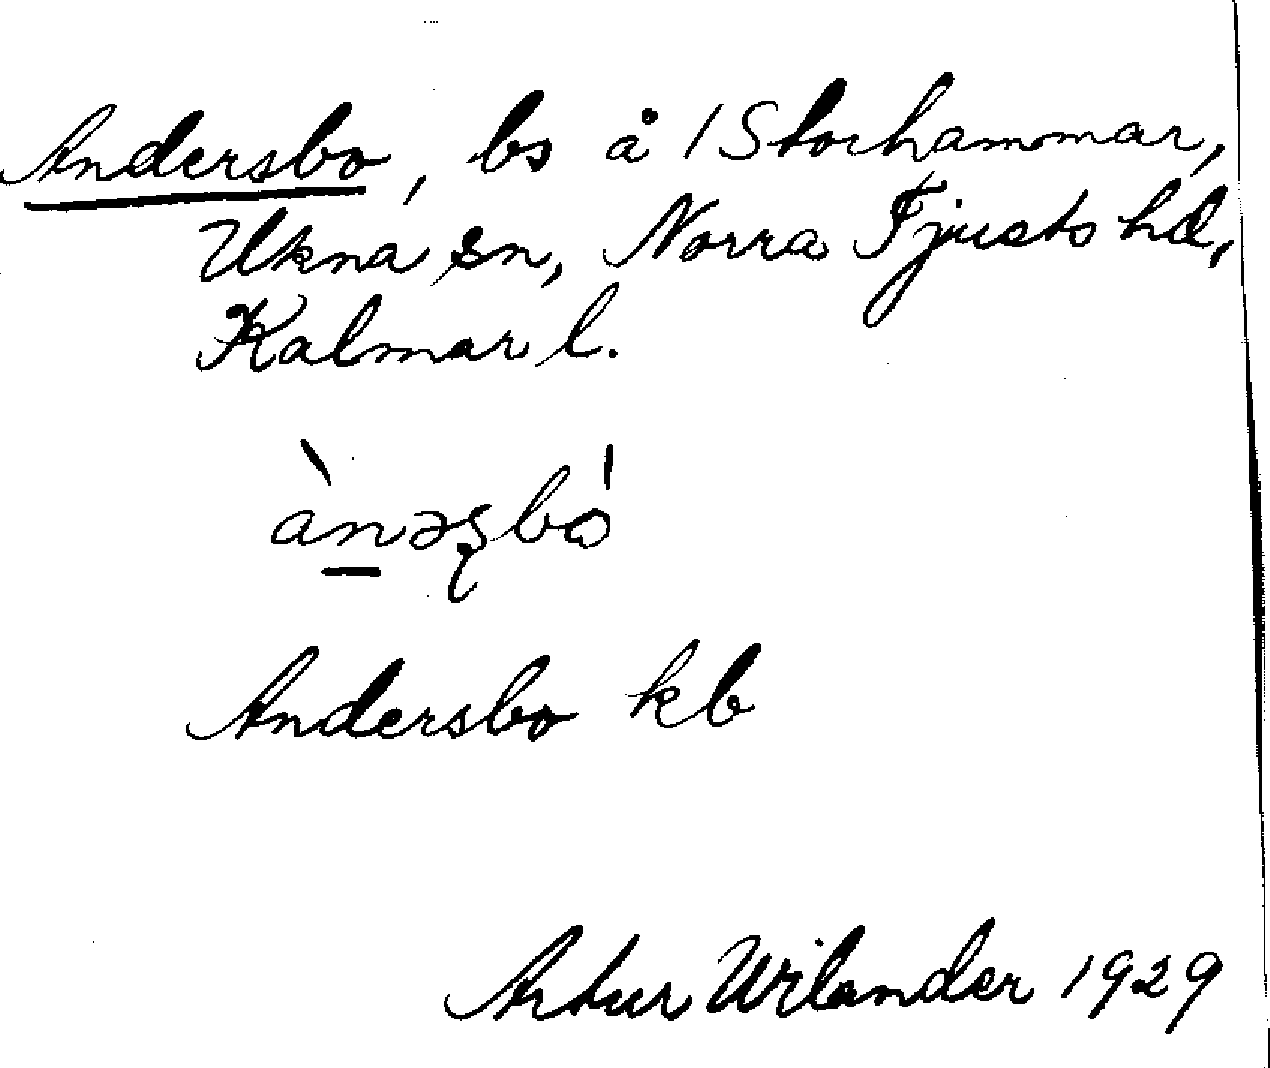 Andersbo, bs å 1 Storhammar,
Ukna sn, Norra Tjusts hd,
Kalmar l.
ànəʂbó
Andersbo kb
Artur Wilander 1929